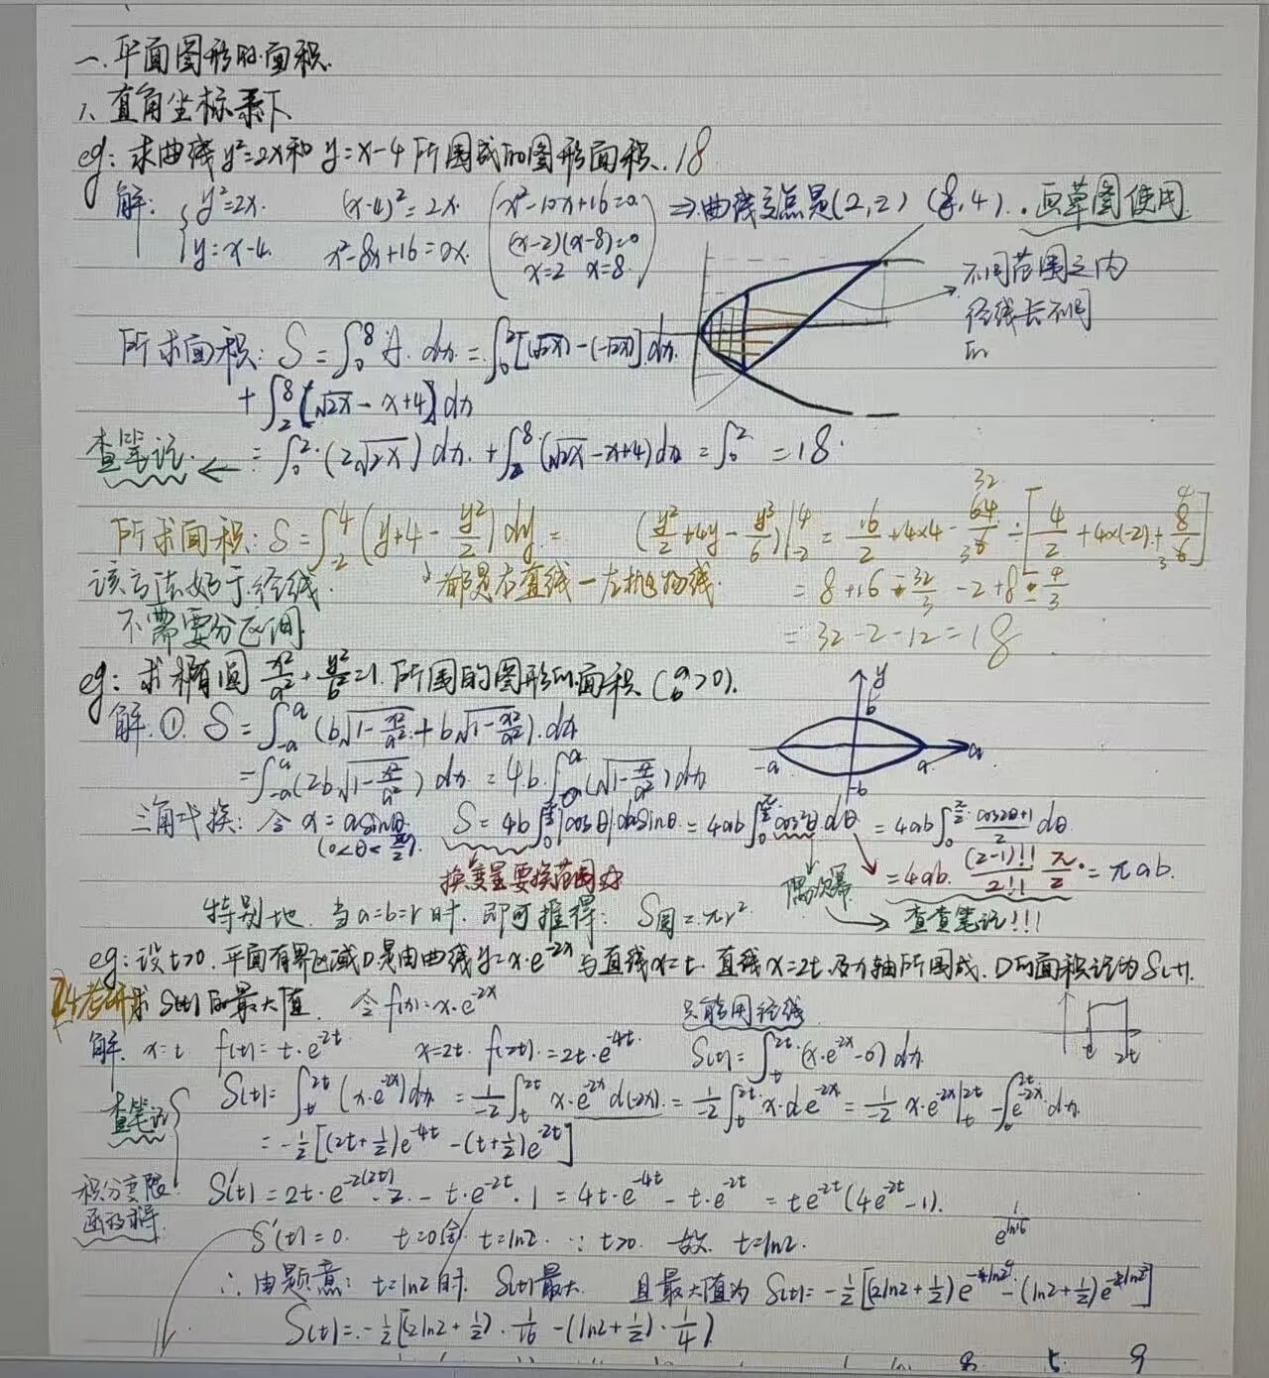 一.平面图形的面积.
1、直角坐标系下
eg: 求曲线y²=2x和y=x-4所围成的图形面积.18
解: { y²=2x. (x-4)²=2x. ( x²-10x+16=0. ⇒曲线交点是(2,2) (8,4). 画草图使用.
y=x-4. x²-8x+16=2x. (x-2)(x-8)=0
x=2 x=8. )
不同范围之内
径线长不同
所求面积: S=∫₀⁸ dx.=∫₀²[(√2x)-(-√2x)]dx.
+∫₂⁸[√2x-x+4]dx
查笔记. ← =∫₀²(2√2x)dx.+∫₂⁸(√2x-x+4)dx=∫₀² =18.
所求面积: S=∫₋₂⁴(y+4-y²/2)dy= (y²/2+4y-y³/6)|₋₂⁴=16/2+4×4-64/6-[4/2+4×(-2)+8/6]
32 3 4 3
该方法好于径线. 都是右直线-左抛物线. =8+16-32/3-2+8-4/3
不需要分区间. =32-2-12=18
eg: 求椭圆x²/a²+y²/b²=1.所围的图形的面积(a b>0).
y b -a a x -b
解.① S=∫₋ₐᵃ(b√1-x²/a²+b√1-x²/a²).dx
=∫₋ₐᵃ(2b√1-x²/a²)dx=4b∫₀ᵃ(√1-x²/a²)dx
三角代换: 令x=asinθ. S=4b∫₀^{π/2}|cosθ|dasinθ.=4ab∫₀^{π/2}cos²θ.dθ=4ab∫₀^{π/2}(cos2θ+1)/2 dθ
(0<θ<π/2).
换变量要换范围 偶次幂 =4ab.(2-1)!!/2!!.π/2=πab.
特别地.当a=b=r时.即可推得: S圆=πr². → 查查笔记!!!
eg:设t>0.平面有界区域D是由曲线y=x·e^{-2x}与直线x=t.直线x=2t.及x轴所围成.D的面积记为S(t).
24考研求S(t)的最大值. 令f(x)=x·e^{-2x} 只能用径线
t 2t
解.x=t f(t)=t·e^{-2t} x=2t. f(2t).=2t·e^{-4t}. S(t)=∫ₜ^{2t}(x·e^{-2x}-0)dx
查笔记 S(t)=∫ₜ^{2t}(x·e^{-2x})dx=1/-2∫ₜ^{2t}x·e^{-2x}d(-2x).=1/-2∫ₜ^{2t}x·de^{-2x}=1/-2 x·e^{-2x}|ₜ^{2t}-∫e^{-2x}.dx
=-1/2[(2t+1/2)e^{-4t}-(t+1/2)e^{-2t}]
积分变限函数求导. S'(t)=2t·e^{-2(2t)}·2.-t·e^{-2t}·1=4t·e^{-4t}-t·e^{-2t}=te^{-2t}(4e^{-2t}-1).
S'(t)=0. t=0(舍) t=ln2. ∵t>0. 故. t=ln2. 1/e^{ln16}
∴由题意: t=ln2时. S(t)最大. 且最大值为S(t)=-1/2[(2ln2+1/2)e^{-4ln2}-(ln2+1/2)e^{-2ln2}]
S(t)=-1/2[(2ln2+1/2).1/16-(ln2+1/2).1/4]